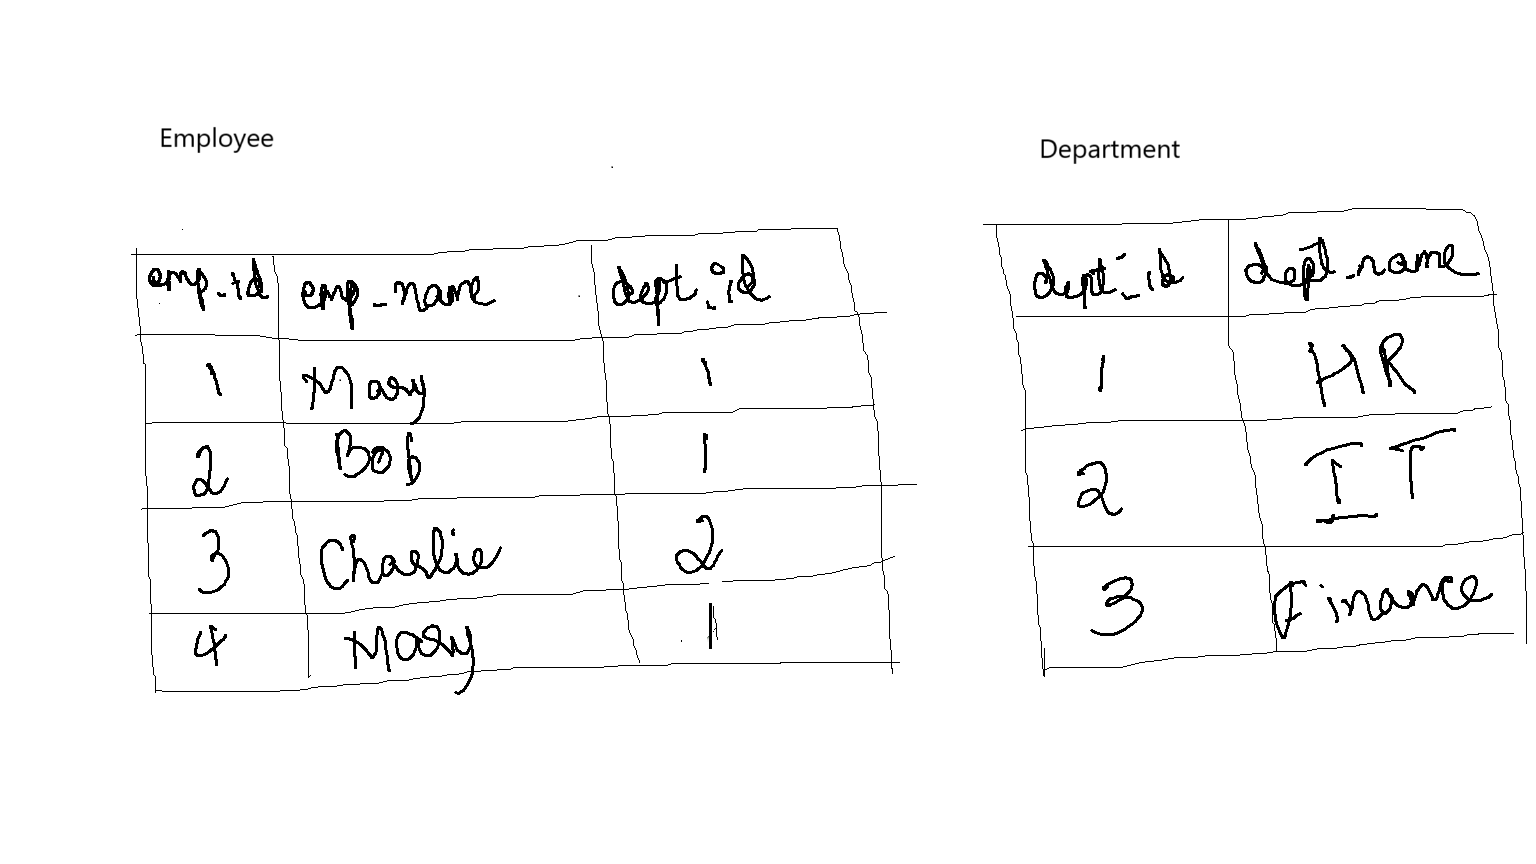 Employee
emp_id emp_name dept_id
1 Mary 1
2 Bob 1
3 Charlie 2
4 Mary 1
Department
dept_id dept_name
1 HR
2 IT
3 Finance